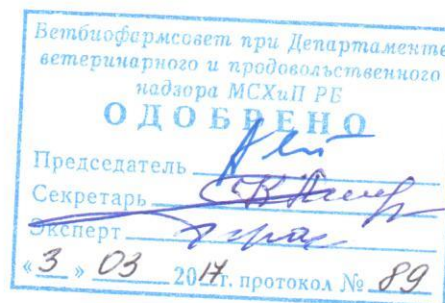 Ветбиофармсовет при Департаменте
ветеринарного и продовольственного
надзора МСХиП РБ
ОДОБРЕНО
Председатель
Секретарь
Эксперт
«3» 03 2017г. протокол № 89